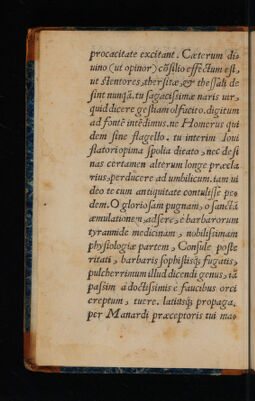 procacitate excitant. Cæterum di-
uino (ut opinor) cõsilio effectum est,
ut stentores, thersitæ, & thessali de
sint nunquã. tu sagacissimæ naris uir,
quid dicere gestiam olfacito. digitum
ad fontẽ intẽdimus. ne Homerus qui
dem sine flagello. tu interim Ioui
statori opima spolia dicato, nec desi
nas certamen alterum longe præcla
rius, perducere ad umbilicum. iam ui
deo te cum antiquitate contulisse pe-
dem. O gloriosam pugnam, o sanctã
æmulationem, adsere, è barbarorum
tyrannide medicinam, nobilissimam
physiologiæ partem, Consule poste
ritati, barbaris sophistisq; fugatis,
pulcherrimum illud dicendi genus, iã
passim à doctissimis è faucibus orci
ereptum, tuere. latiusq; propaga.
per Manardi præceptoris tui ma-